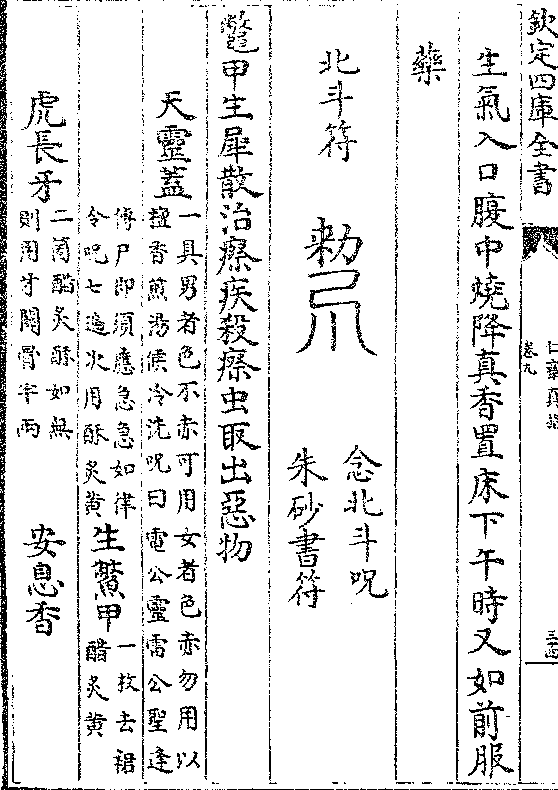 欽定四庫全書
卷九
生氣入口腹中燒降真香置床下午時又如前服
藥
北斗符
勅
念北斗呪
朱砂書符
鼈甲生犀散治瘵疾殺瘵虫取出惡物
天靈蓋
一具男者色不赤可用女者色赤勿用以
檀香煎湯候冷洗呪曰電公靈雷公聖逢
傳尸即須應急急如律
令呪七遍次用酥炙黄
生鱉甲
一枚去裙
醋炙黄
虎長牙
二箇醋炙酥如無
則用牙關骨半兩
安息香